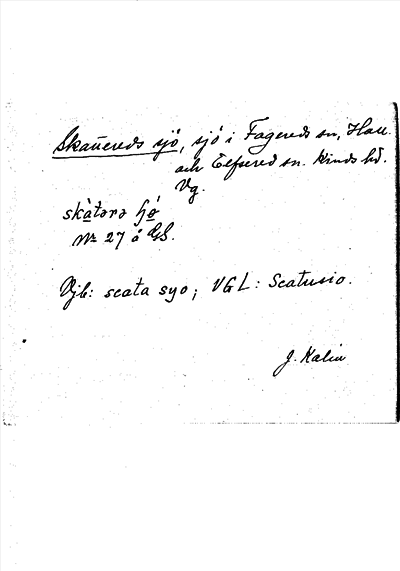 Skattereds sjö, sjö i Fagereds sn, Hall.
och Elfsered sn. Kinds hd.
Vg.
skàtərə ɧø
No 27 å GS.
Vjb: scata syo; VGL: Scatusio.
J. Kalin